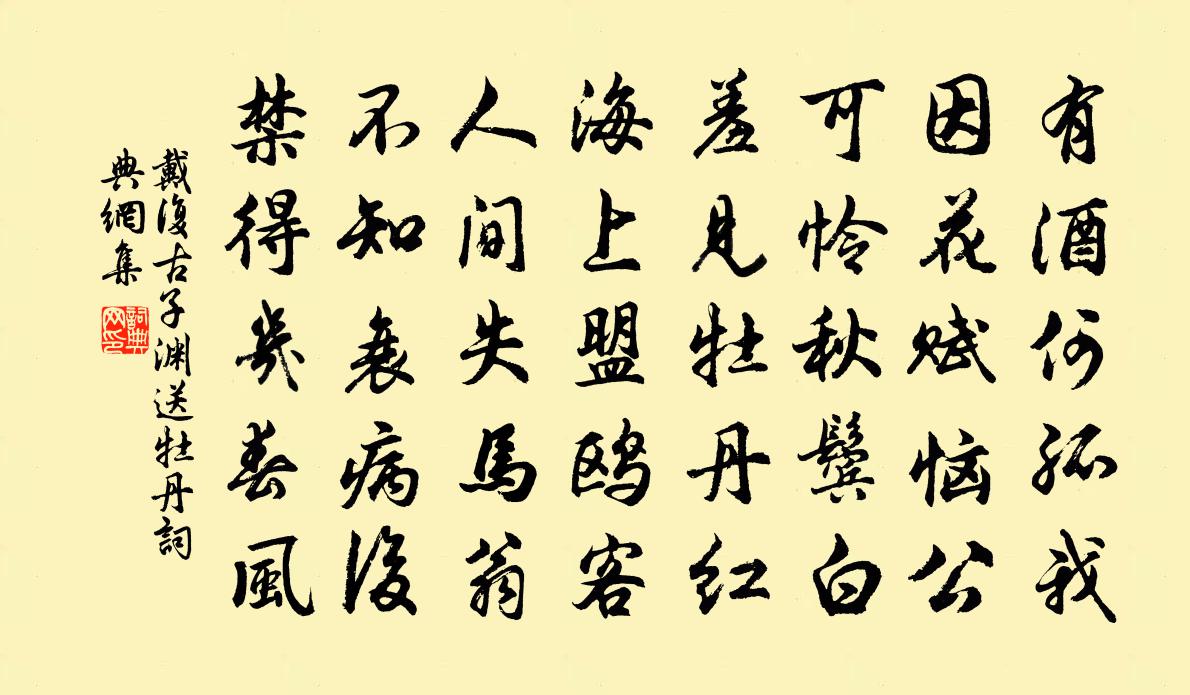 有酒何孤我
因花赋恼公
可怜秋鬓白
羞見牡丹红
海上盟鸥客
人间失馬翁
不知衰病後
禁得幾春風
戴復古子渊送牡丹詞
典網集
詞典网印